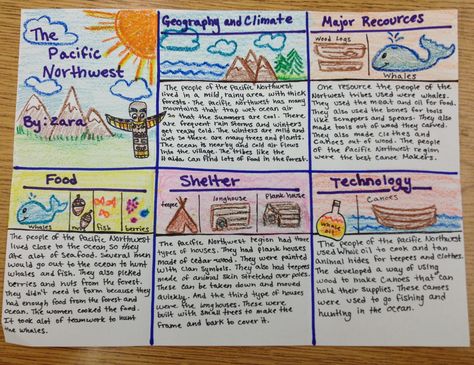 The
Pacific
Northwest
By: Zara
Geography and Climate
The people of the Pacific Northwest
lived in a mild, rainy area with thick
forests. The Pacific Northwest has many
mountains that trap wet ocean air
so that the Summers are cool. There
are frequent rain storms and winters
get really cold. The winters are mild and
wet so there are many trees and plants.
The ocean is nearby and cold air flows
into the village. The tribes like the
Haida can find lots of food in the forest.
Major Recources
Wood Logs
Whales
One resource the people of the
Nortwest tribes used were whales.
They used the meat and oil for food.
They also used the bones for tools
like scrappers and spears. They also
made tools out of wood they carved.
They also made clothes and
Canoes out of wood. The people
of the Pacific Northwest region
were the best Canoe Makers.
Food
whales
nuts
fish
berries
The people of the Pacific Northwest
lived close to the ocean so they
ate alot of seafood. Several men
would go out to the ocean to hunt
whales and fish. They also picked
berries and nuts from the forest.
They didn't need to farm because they
had enough food from the forest and
ocean. The women cooked the food.
It took alot of teamwork to hunt
the whales.
Shelter
teepee
longhouse
Plank house
The Pacific Northwest region had three
types of houses. They had plank houses
made of cedar wood. They were painted
with Clan Symbols. They also had teepees
made of animal skin stretched over poles.
These can be taken down and moved
quickly. And the third type of houses
were the longhouses. These were
built with small trees to make the
frame and bark to cover it.
Technology
whale
oil
Canoes
The people of the Pacific Northwest
used whale oil to cook and tan
animal hides for teepees and clothes.
They developed a way of using
wood to make Canoes that can
hold their supplies. These canoes
were used to go fishing and
hunting in the ocean.